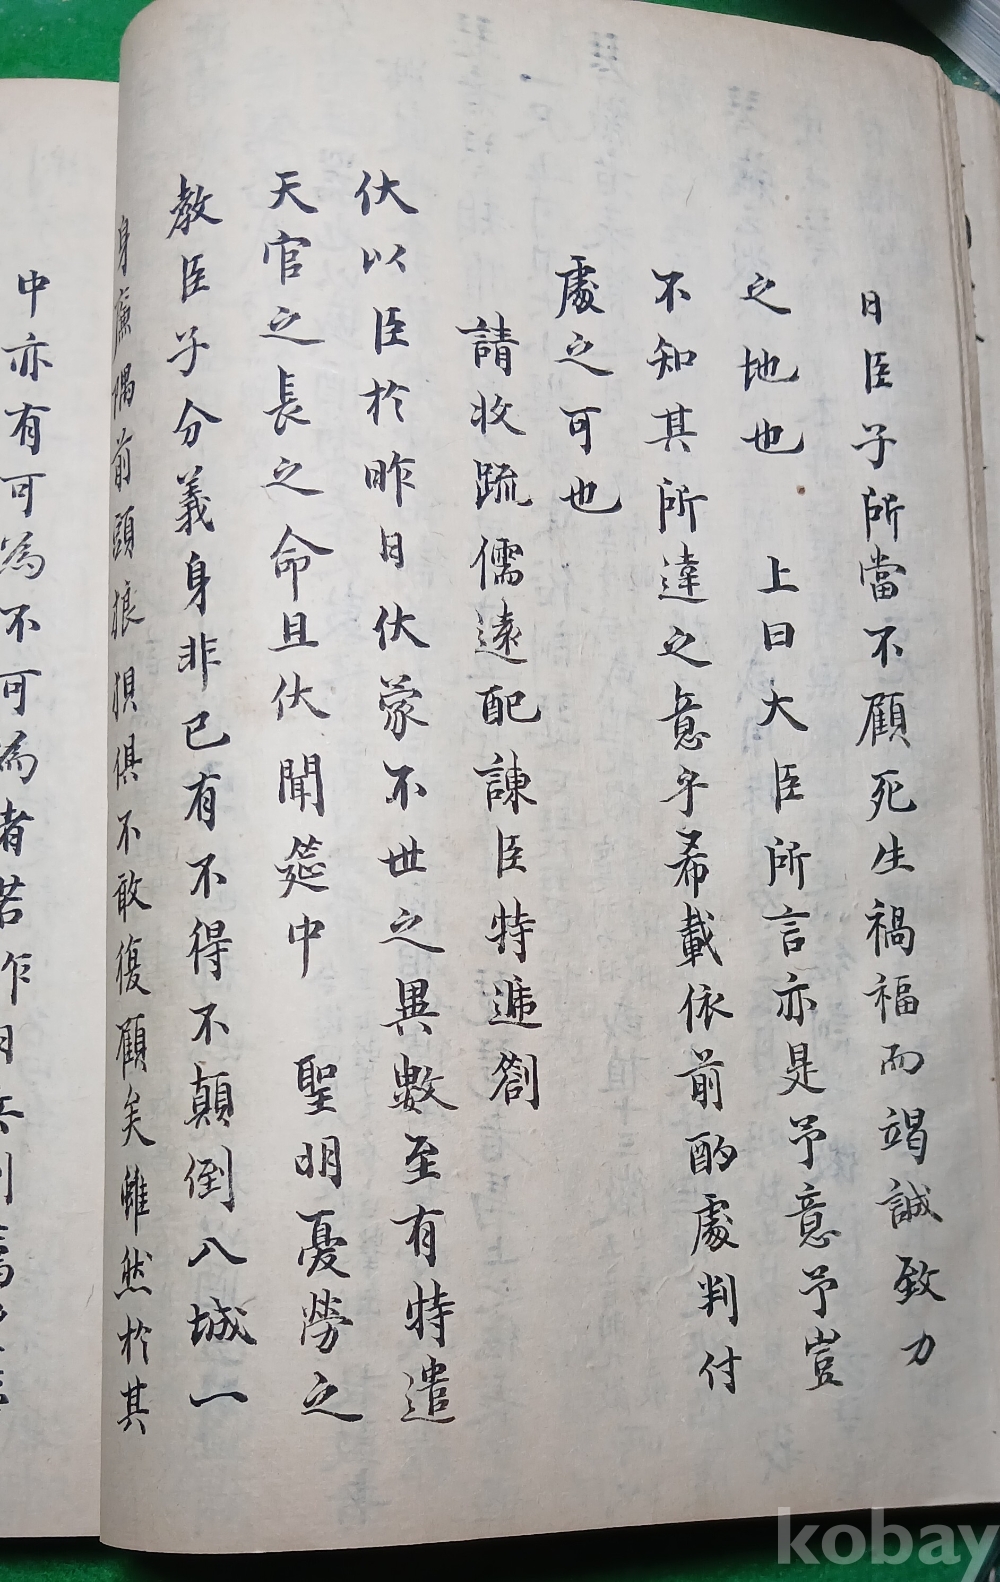 日臣子所當不顧死生禍福而竭誠致力
之地也 上曰大臣所言亦是予意予豈
不知其所達之意乎希載依前酌處判付
處之可也
請收疏儒遠配諫臣特遞劄
伏以臣於昨日伏蒙不世之異數至有特遣
天官之長之命且伏聞筵中 聖明憂勞之
教臣子分義身非已有不得不顛倒入城一
身廉隅前頭狼狽俱不敢復顧矣雖然於其
中亦有可為不可為者若昨日
kobay